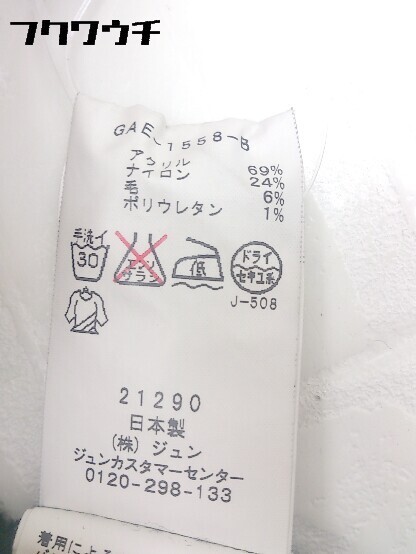 フクワウチ
GAE-1558-B
アクリル 69%
ナイロン 24%
毛 6%
ポリウレタン 1%
手洗イ
30
エンソ
サラシ
低
ドライ
セキユ系
J-508
21290
日本製
(株) ジュン
ジュンカスタマーセンター
0120-298-133
着用による